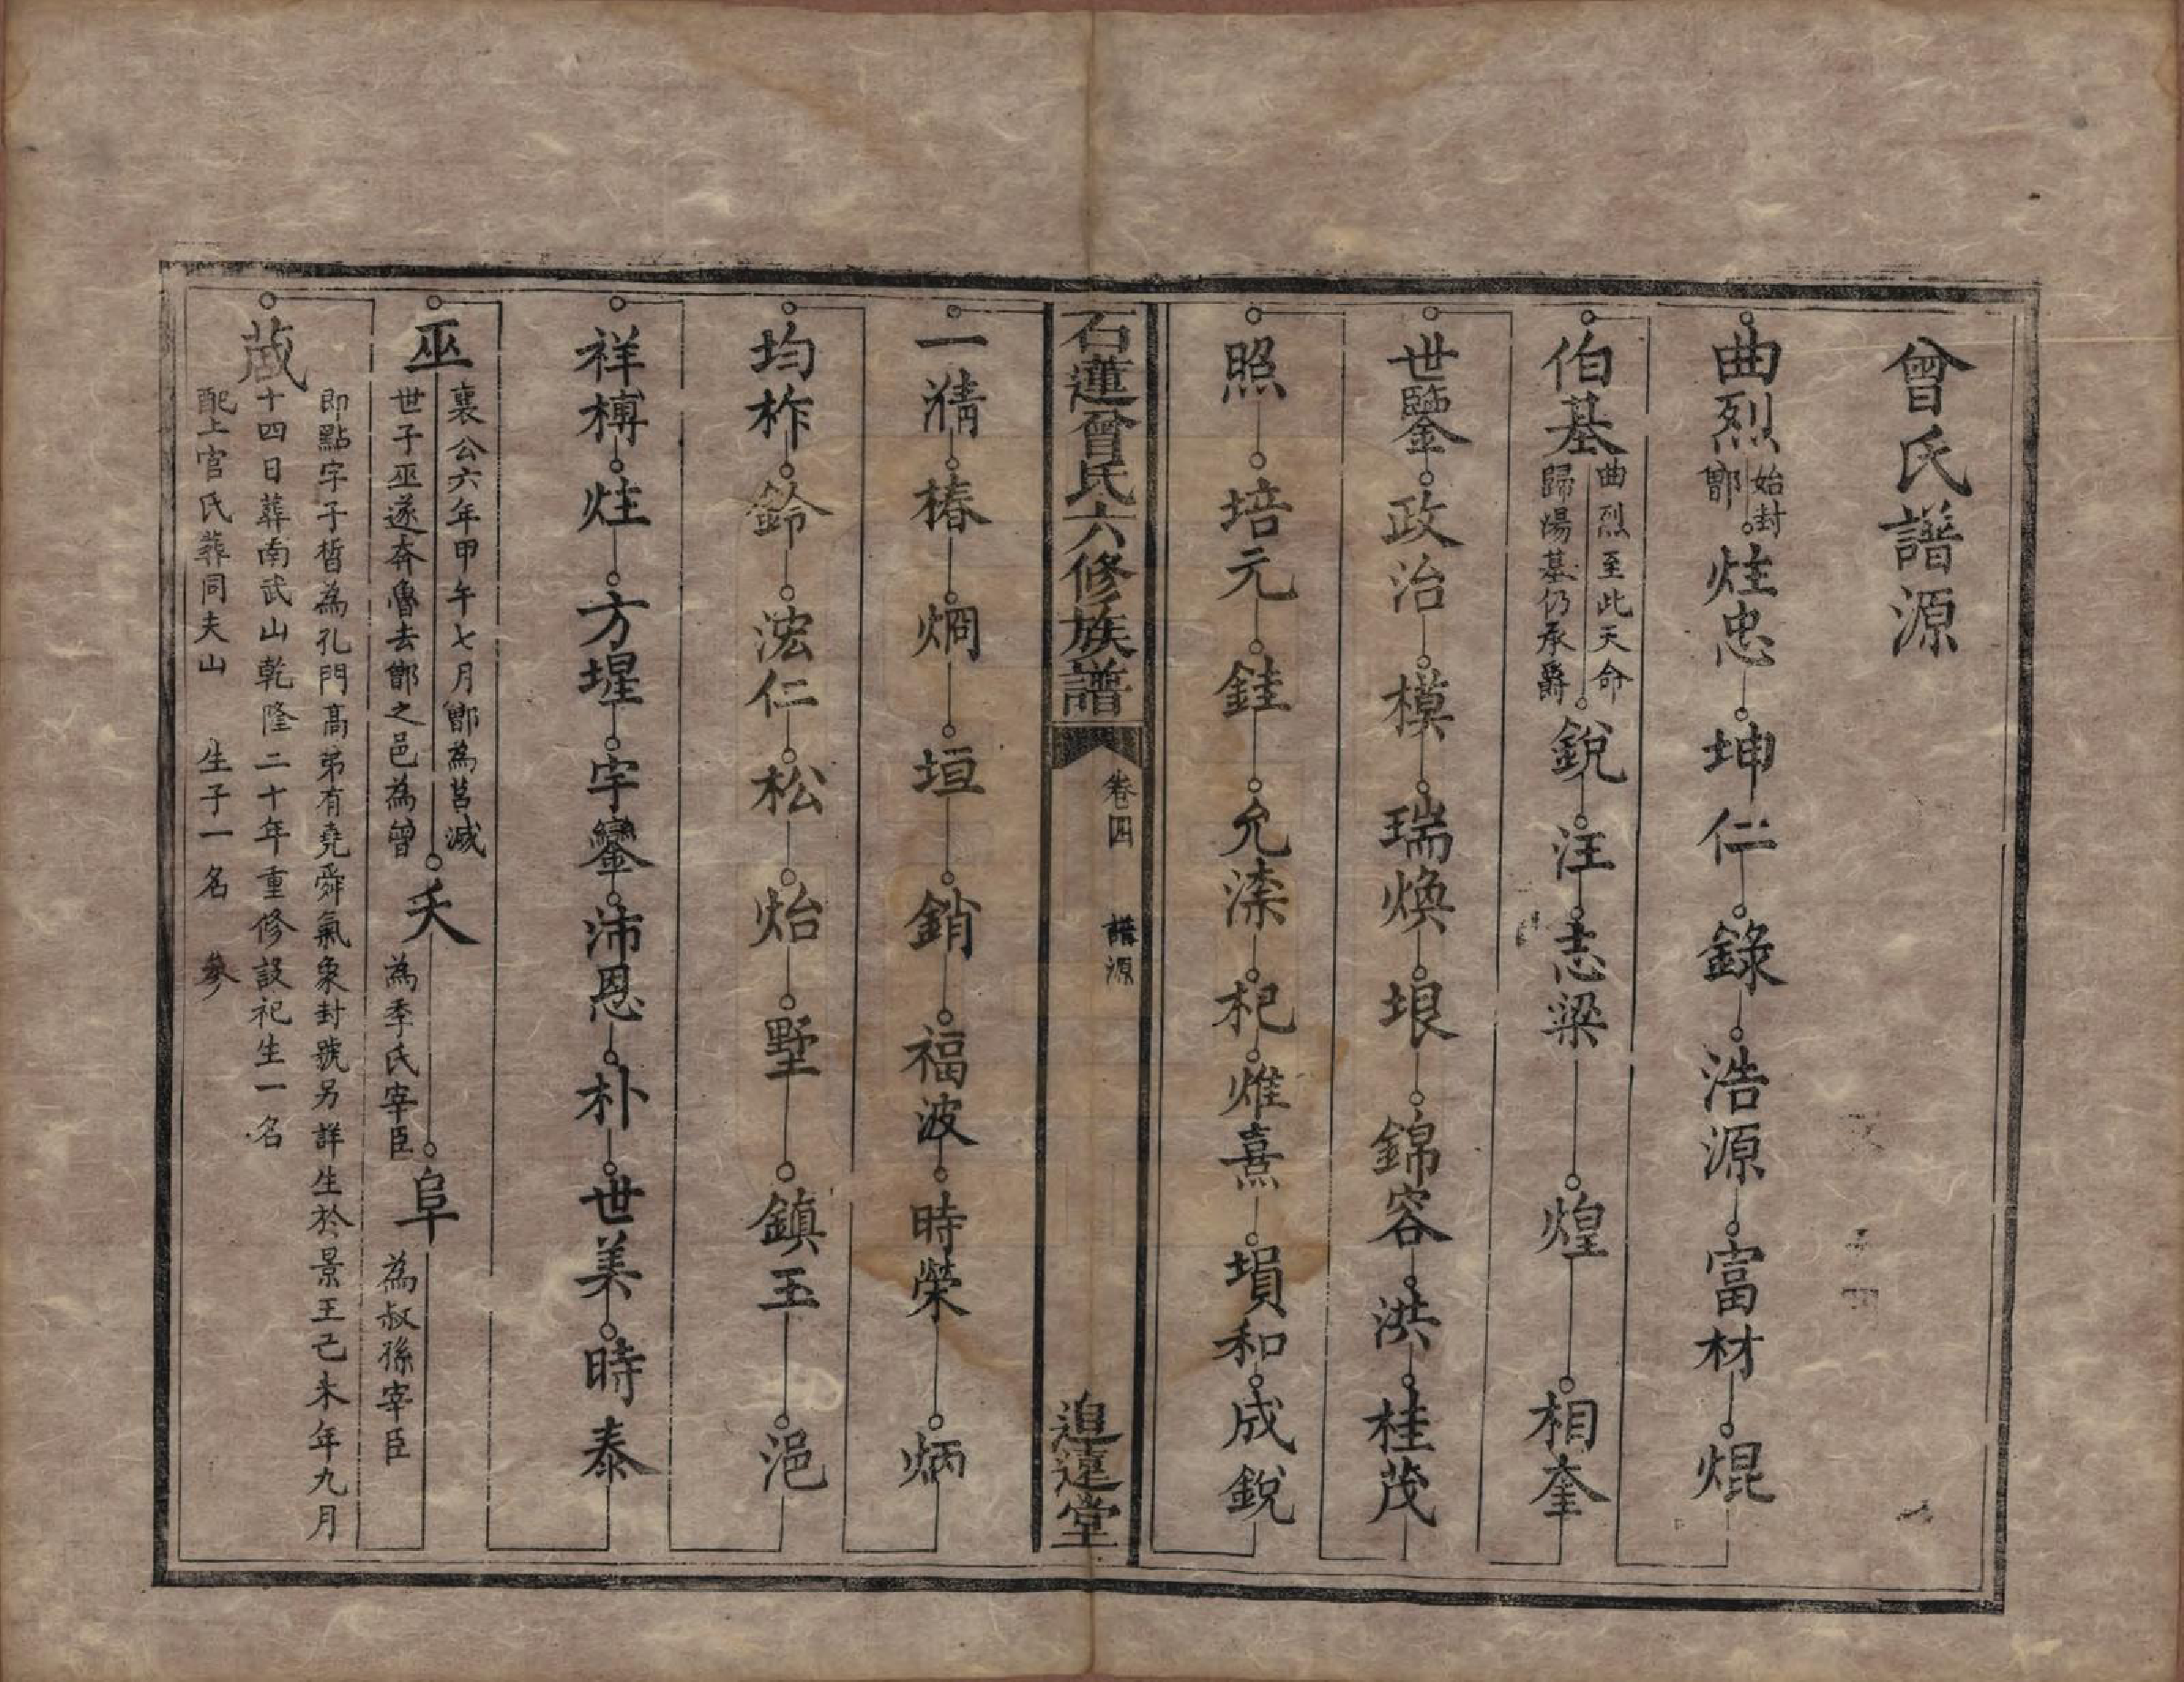 曾氏譜源
曲烈 始封鄫 炷忠 坤仁 錄 浩源 富材 焜
伯基 曲烈至此天命歸湯基仍承爵 銳 汪 志梁 煌 相奎
世鑒 政治 模 瑞煥 垠 錦容 洪 桂茂
照 培元 銈 允㴃 杞 熣熹 塤和 成銳
石蓮曾氏六修族譜
卷四 譜源
追遠堂
一㵙 椿 烱 垣 銷 福波 時榮 炳
均柞 鈴 浤仁 松 炲 墅 鎮玉 浥
祥榑 炷 方堭 宇鑾 沛恩 朴 世美 時泰
巫 襄公六年甲午七月鄫為莒滅
世子巫遂奔魯去鄫之邑為曾 夭 為季氏宰臣 阜 為叔孫宰臣
蒧 即點字子晳為孔門高弟有堯舜氣象封號另詳生於景王己未年九月
十四日葬南武山乾隆二十年重修設祀生一名
配上官氏葬同夫山 生子一名 參